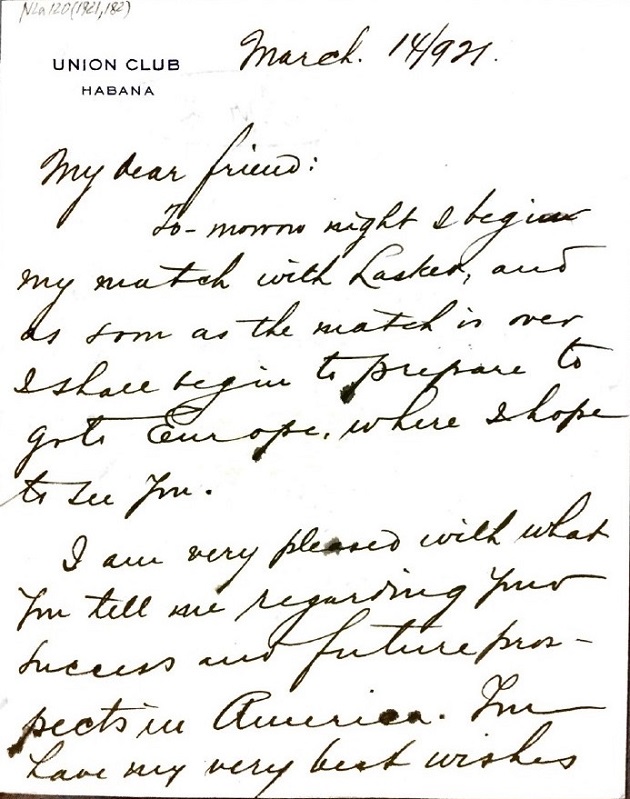 NLa 120 (1921, 182)
UNION CLUB
HABANA
March. 14/921.
My dear friend:
To-morrow night I begin
my match with Lasker, and
as soon as the match is over
I shall begin to prepare to
go to Europe, where I hope
to see you.
I am very pleased with what
You tell me regarding your
success and future pros-
pects in America. You
have my very best wishes